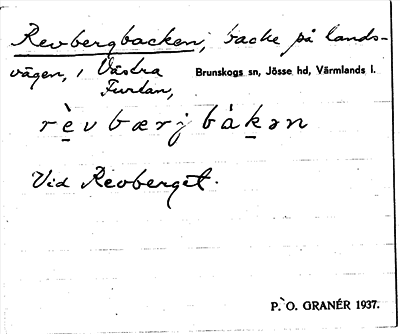 Revbergbacken, backe på lands-
vägen, i Västra Brunskogs sn, Jösse hd, Värmlands l.
Furtan,
rèv bærj bàkən
Vid Revberget.
P. O. GRANÉR 1937.